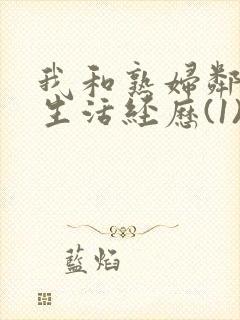 我和熟婦鄰
生活经歷(1)
藍焰